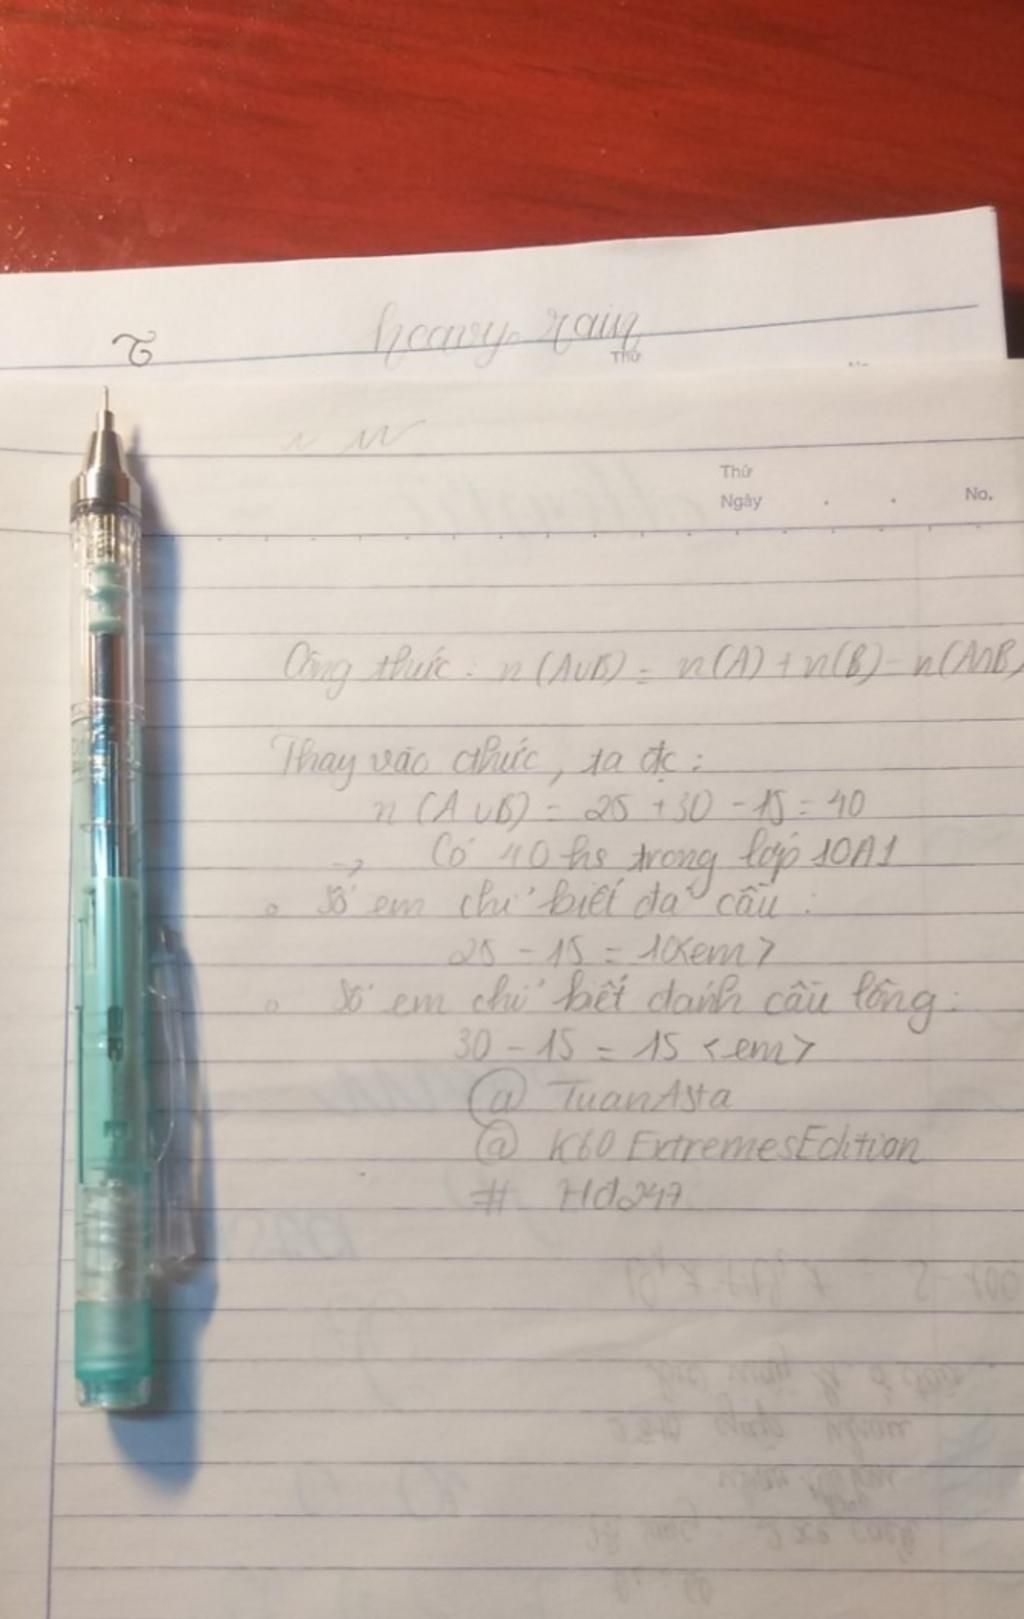 heavy rain
Thứ
Thứ
Ngày . . No.
Công thức : n (A∪B) = n(A) + n(B) - n(A∩B)
Thay vào cthức, ta đc :
n (A∪B) = 25 + 30 - 15 = 40
→ Có 40 hs trong lớp 10A1
Số em chỉ biết đá cầu :
25 - 15 = 10<em>
Số em chỉ biết đánh cầu lông :
30 - 15 = 15 <em>
@ TuanAsta
@ K60 ExtremesEdition
# Hd247